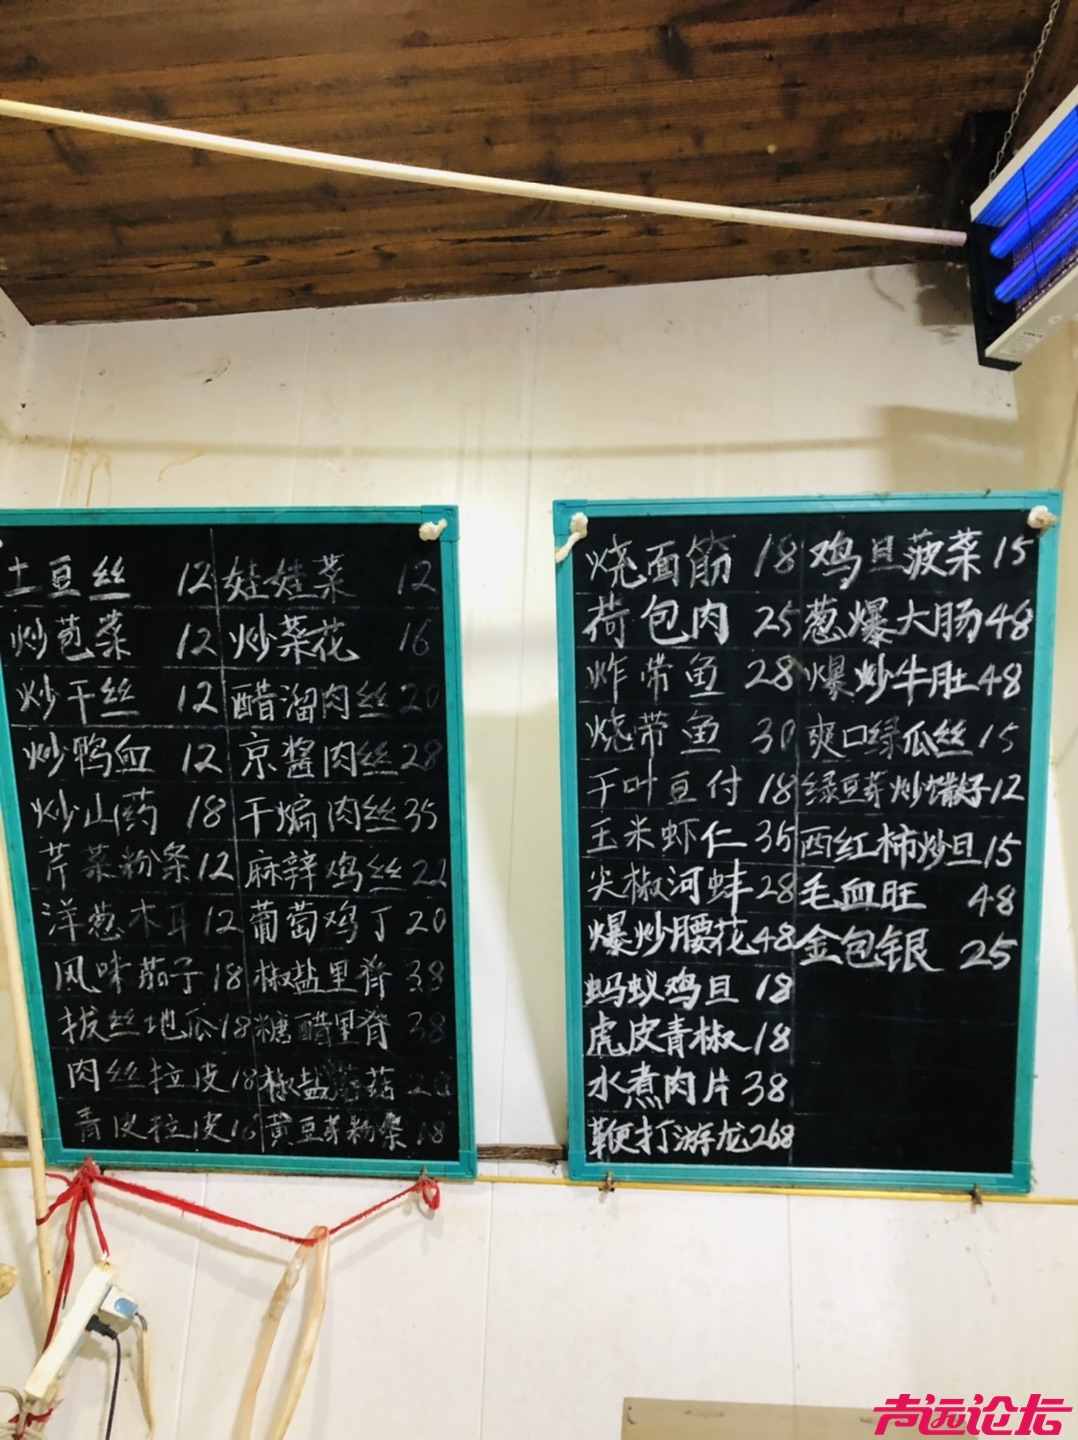 土豆丝 12 娃娃菜 12
炒苞菜 12 炒菜花 16
炒干丝 12 醋溜肉丝 20
炒鸭血 12 京酱肉丝 28
炒山药 18 干煸肉丝 35
芹菜粉条 12 麻辣鸡丝 22
洋葱木耳 12 葡萄鸡丁 20
风味茄子 18 椒盐里脊 38
拔丝地瓜 18 糖醋里脊 38
肉丝拉皮 18 椒盐蘑菇
青皮拉皮 16 黄豆芽粉条 18
烧面筋 18 鸡旦菠菜 15
荷包肉 25 葱爆大肠 48
炸带鱼 28 爆炒牛肚 48
烧带鱼 30 爽口绿瓜丝 15
千叶豆付 18 绿豆芽炒馓籽 12
玉米虾仁 35 西红柿炒旦 15
尖椒河蚌 28 毛血旺 48
爆炒腰花 48 金包银 25
蚂蚁鸡旦 18
虎皮青椒 18
水煮肉片 38
鞭打游龙 268
声远论坛